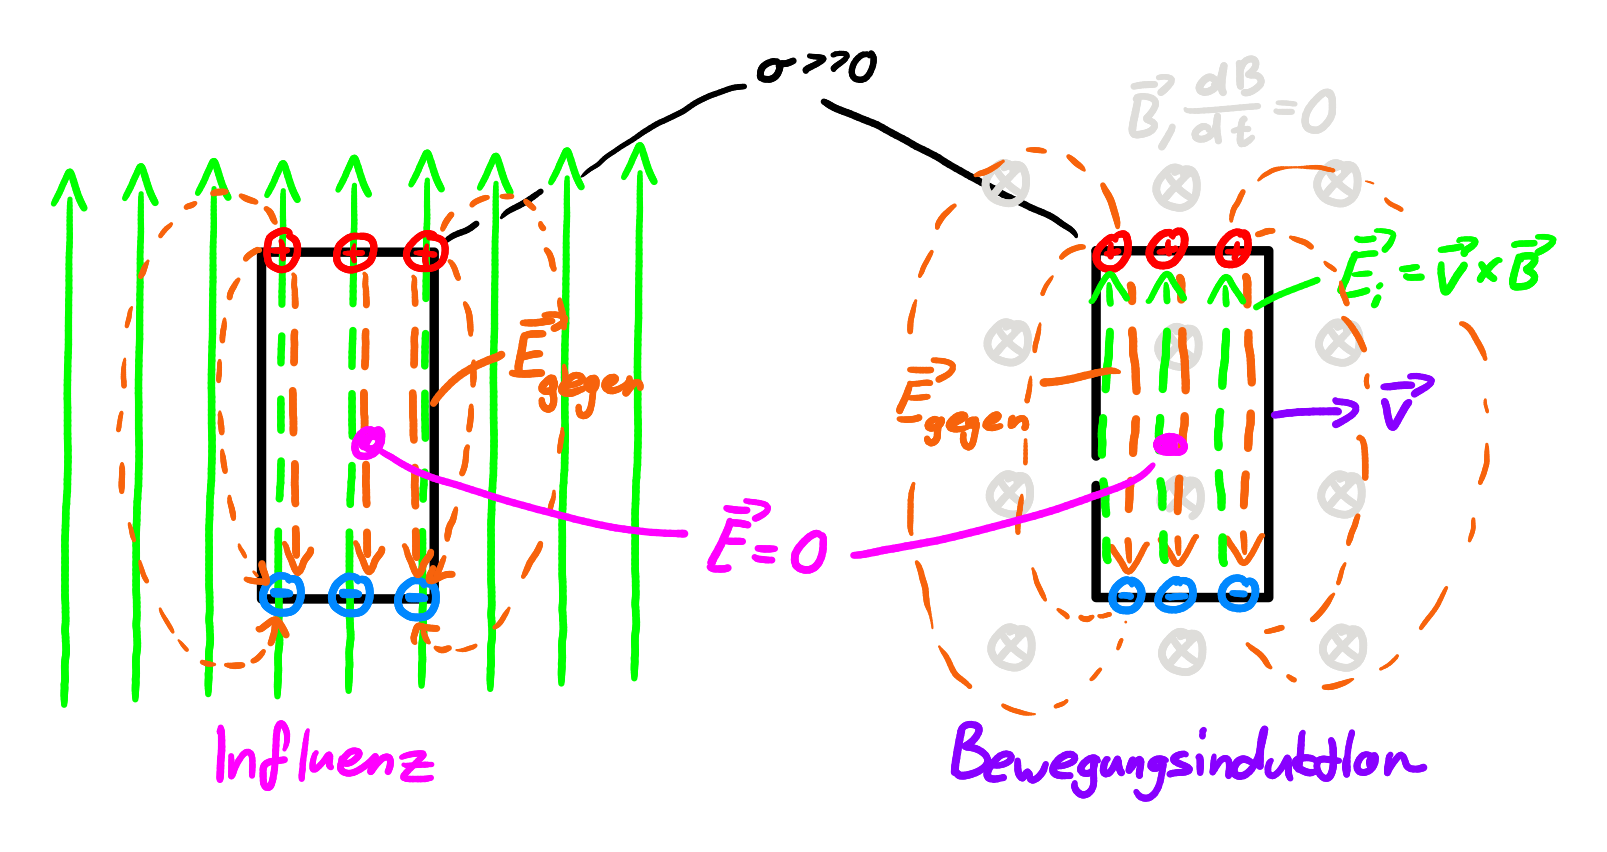 σ>>0
B⃗, dB/dt = 0
E⃗gegen
E⃗i = v⃗ × B⃗
E⃗gegen
v⃗
E⃗ = 0
Influenz
Bewegungsinduktion